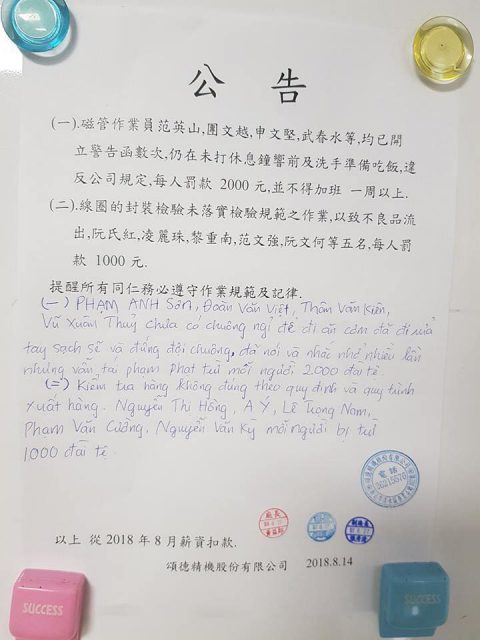 公 告
(一).磁管作業員范英山,團文越,申文堅,武春水等,均已開
立警告函數次,仍在未打休息鐘響前及洗手準備吃飯,違
反公司規定,每人罰款 2000 元,並不得加班 一周以上.
(二).線圈的封裝檢驗未落實檢驗規範之作業,以致不良品流
出,阮氏紅,凌麗珠,黎重南,范文強,阮文何等五名,每人罰
款 1000 元.
提醒所有同仁務必遵守作業規範及記律.
(一) PHẠM ANH SƠN, Đoàn Văn Việt, Thân Văn Kiên,
Vũ Xuân Thuỷ chưa có chuông nghỉ để đi ăn cơm đã đi rửa
tay sạch sẽ và đứng đợi chuông, đã nói và nhắc nhở nhiều lần
nhưng vẫn tái phạm phạt trừ mỗi người 2.000 đài tệ.
(二) Kiểm tra hàng không đúng theo quy định và quy trình
xuất hàng. Nguyễn Thị Hồng, A Ý, Lê Trọng Nam,
Phạm Văn Cường, Nguyễn Văn Ký mỗi người bị trừ
1000 đài tệ.
電話
以上 從 2018 年 8 月薪資扣款.
頌德精機股份有限公司 2018.8.14
SUCCESS
SUCCESS